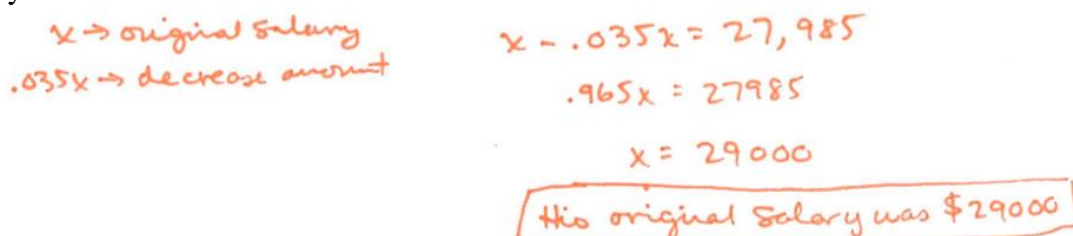 y
x → original salary
.035x → decrease amount
x - .035x = 27,985
.965x = 27985
x = 29000
His original salary was $29000